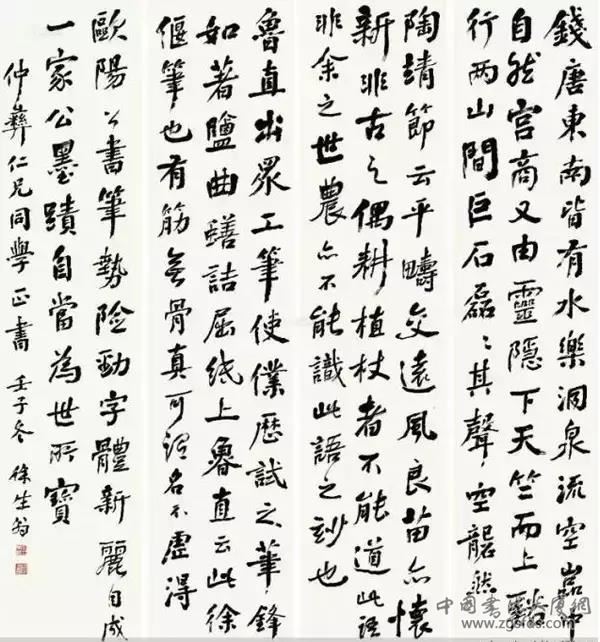 錢唐東南皆有水樂洞泉流空巖中
自然宮商又由靈隱下天竺而上谿
行两山間巨石磊〻其聲空礱然
陶靖節云平疇交遠風良苗亦懷
新非古之偶耕植杖者不能道此語
非余之世農亦不能識此語之妙也
魯直出眾工筆使僕歷試之筆鋒
如著鹽曲蟮詰屈紙上魯直云此徐
偃筆也有筋無骨真可謂名不虛得
歐陽公書筆勢險勁字體新麗自成
一家公墨蹟自當為世所寶
仲彝仁兄同學正書 壬子冬 徐生翁
www.zgsfds.com